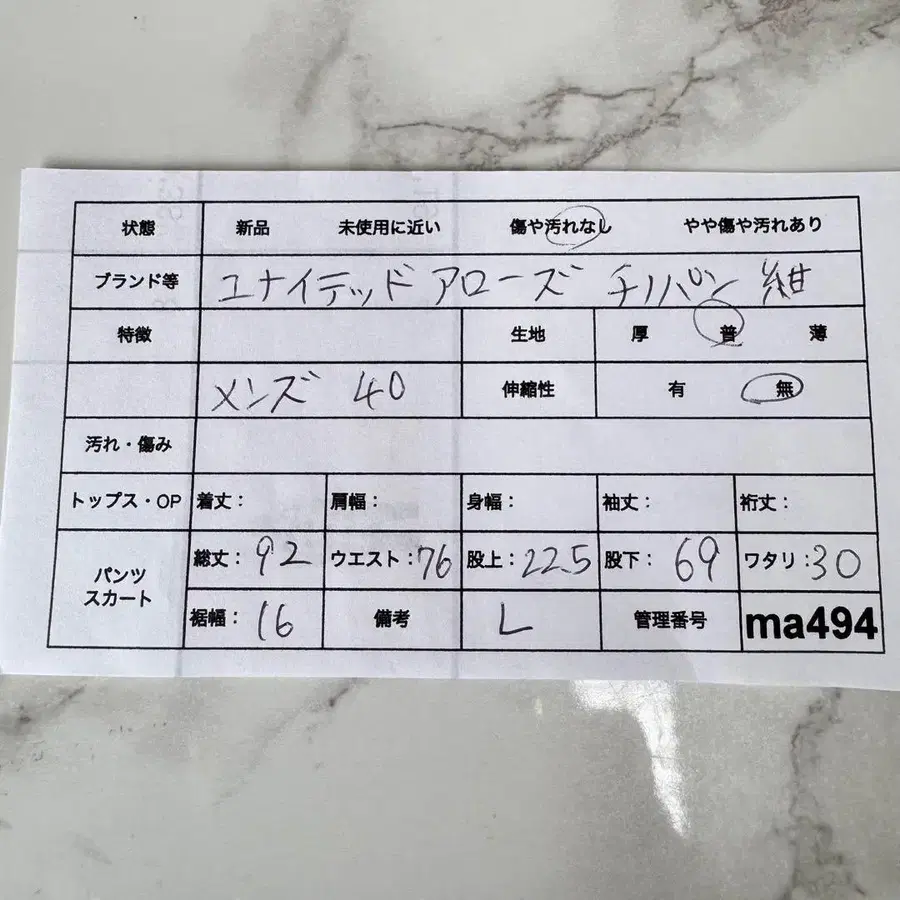 状態 新品 未使用に近い 傷や汚れなし やや傷や汚れあり
ブランド等 ユナイテッド アローズ チノパン 紺
特徴 生地 厚 普 薄
メンズ 40 伸縮性 有 無
汚れ・傷み
トップス・OP 着丈： 肩幅： 身幅： 袖丈： 裄丈：
パンツ スカート 総丈：92 ウエスト：76 股上：22.5 股下：69 ワタリ：30
裾幅：16 備考 L 管理番号 ma494